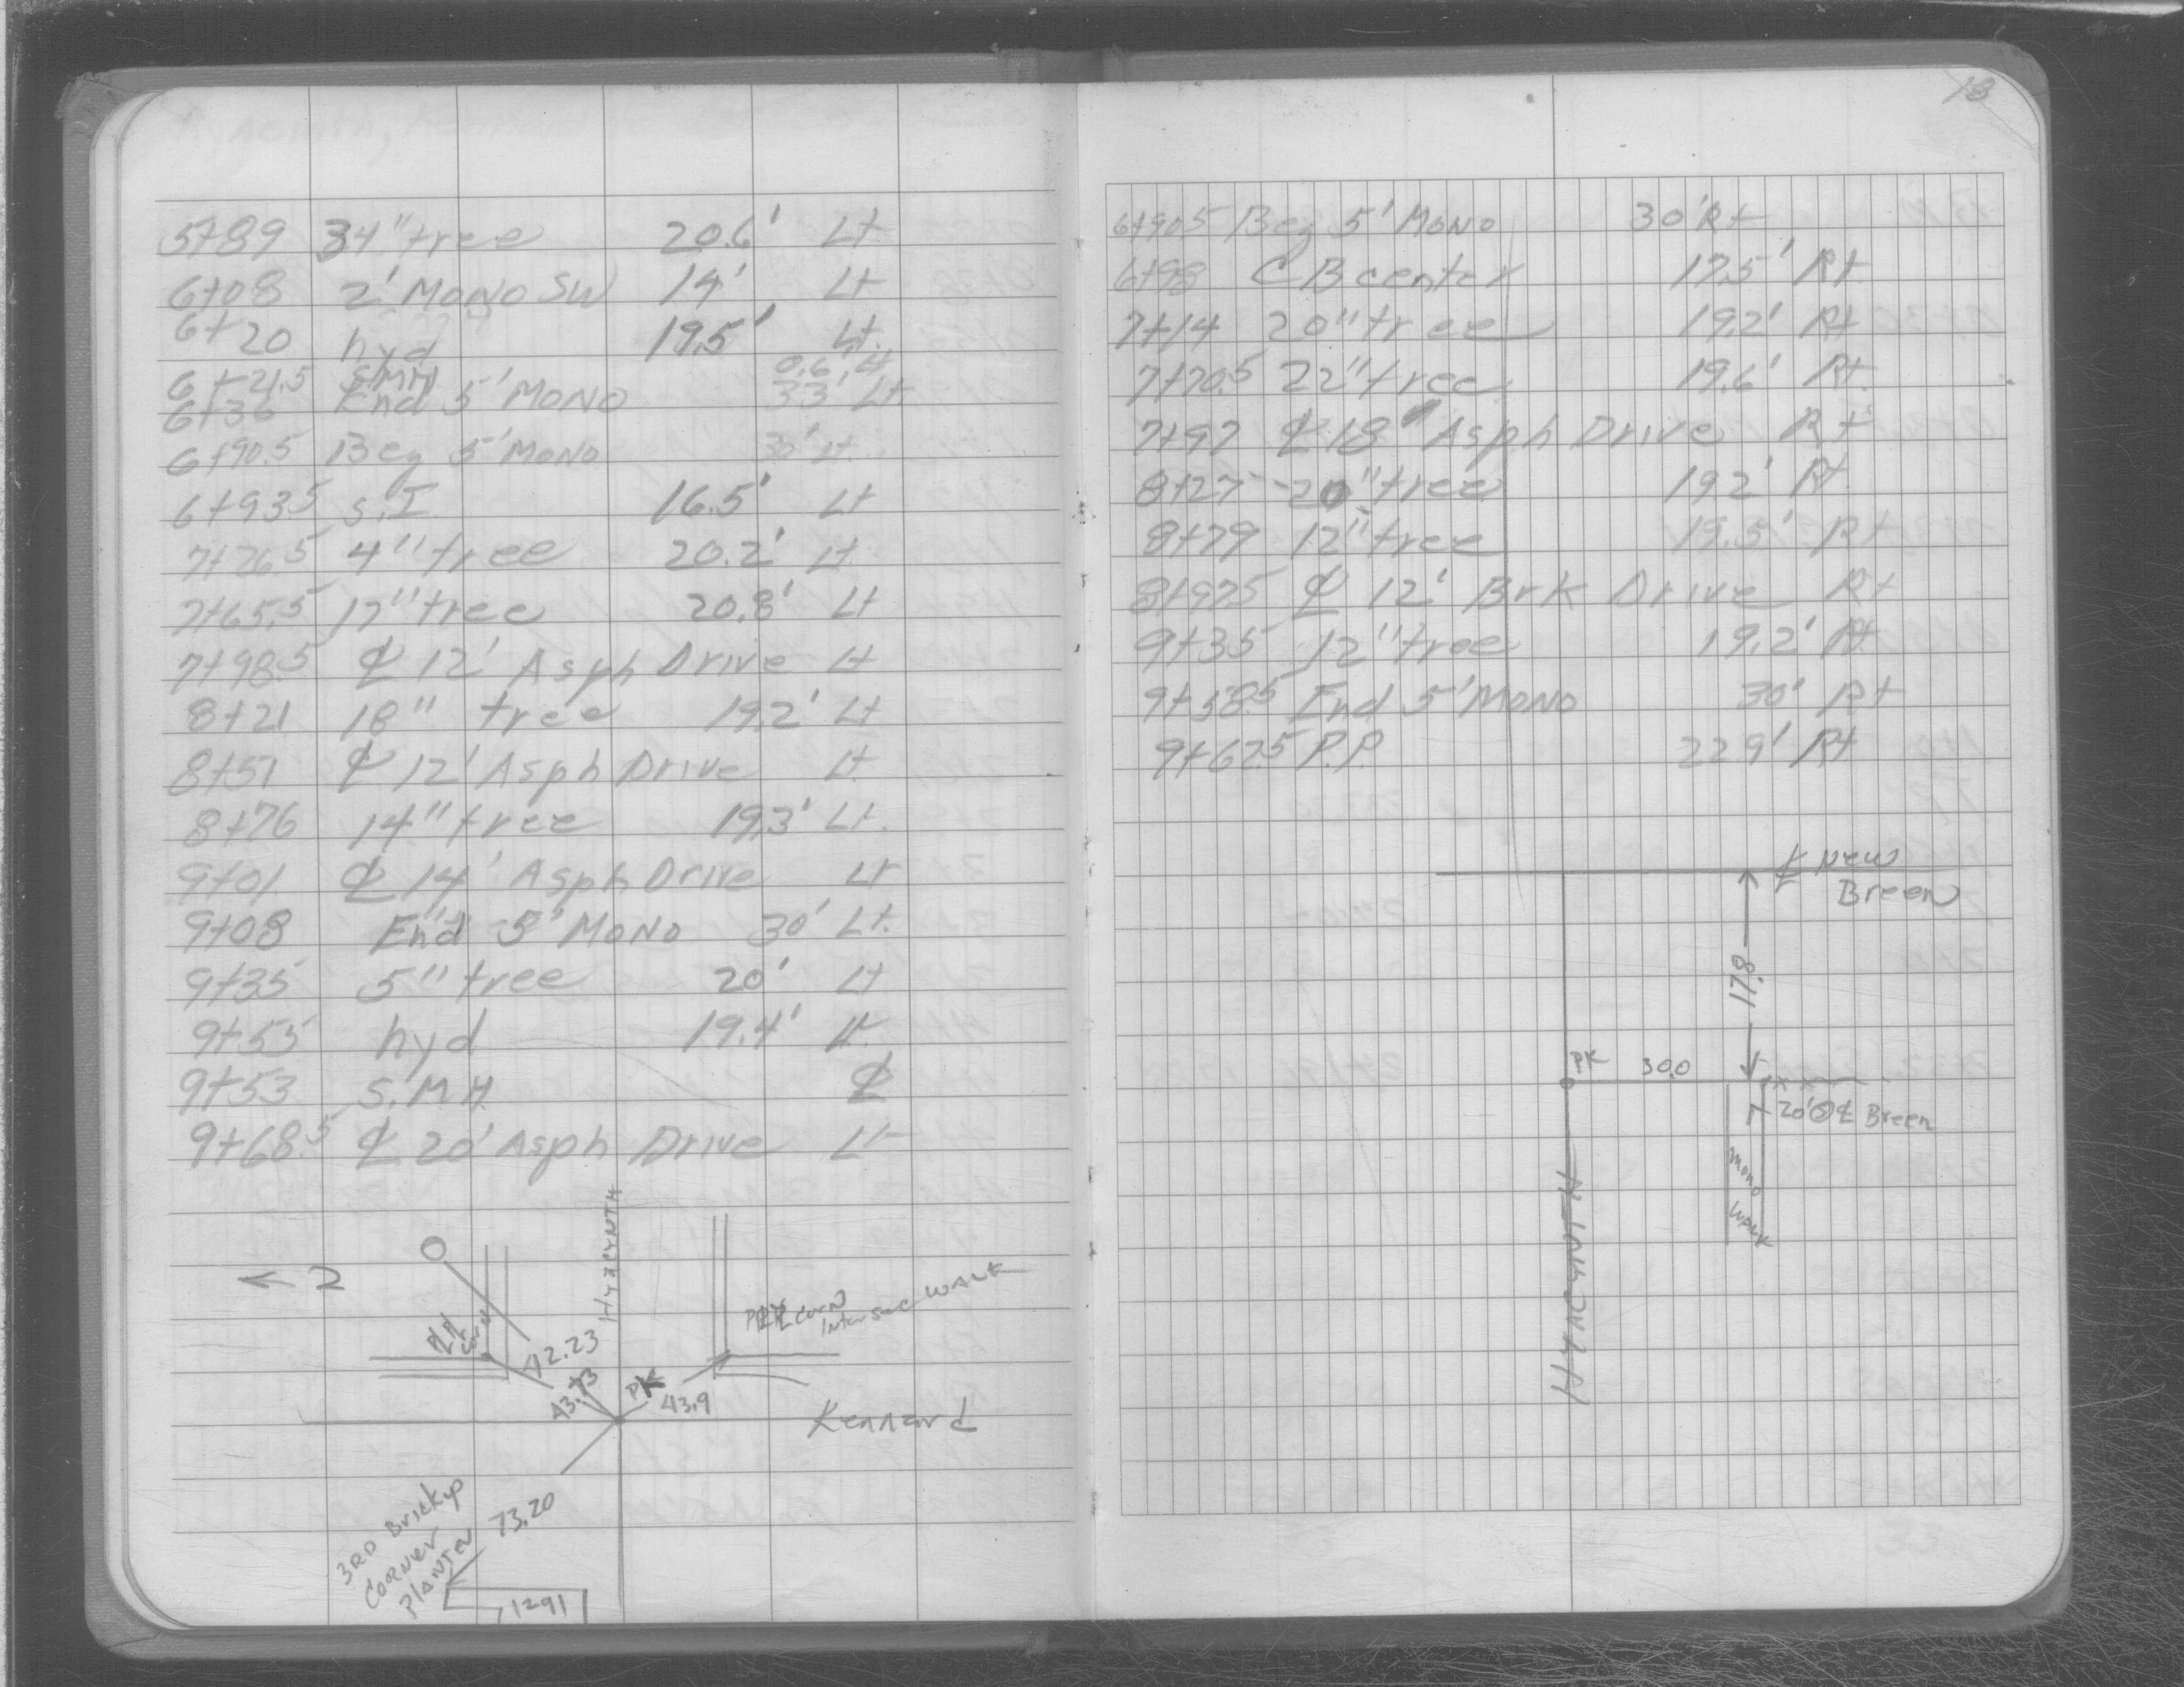 5+89 34" tree 20.6' Lt
6+08 2' MONO SW 14' Lt
6+20 hyd 19.5' Lt.
6+21.5 SMH 0.6' Lt
6+36 End 5' MONO 33' Lt.
6+90.5 Beg 5' MONO 30' Lt.
6+93.5 S.I 16.5' Lt
7+26.5 4" tree 20.2' Lt
7+65.5 17" tree 20.8' Lt
7+98.5 ℄ 12' Asph Drive Lt
8+21 18" tree 19.2' Lt
8+51 ℄ 12' Asph Drive Lt
8+76 14" tree 19.3' Lt.
9+01 ℄ 14' Asph Drive Lt
9+08 End 5' MONO 30' Lt.
9+35 5" tree 20' Lt
9+55 hyd 19.4' Lt
9+53 S.M.H. ℄
9+68.5 ℄ 20' Asph Drive Lt
HYACYNTH
N
42.23
43.73
PK
43.9
CORN
Intersec WALK
Kennard
73.20
3RD Brick up
CORNER
PLANTER
1291
18
6+90.5 Beg 5' MONO 30' Rt
6+98 CB center 17.5' Rt
7+14 20" tree 19.2' Rt
7+70.5 22" tree 19.6' Rt.
7+97 ℄ 18' Asph Drive Rt
8+27 20" tree 19.2' Rt.
8+79 12" tree 19.5' Rt
8+97.5 ℄ 12' Brk Drive Rt
9+35 12" tree 19.2' Rt
9+58.5 End 5' MONO 30' Rt
9+62.5 P.P. 22.9' Rt
℄ New
Breen
17.8
PK 30.0
20' ℄ Breen
MONO
WALK
HYACYNTH